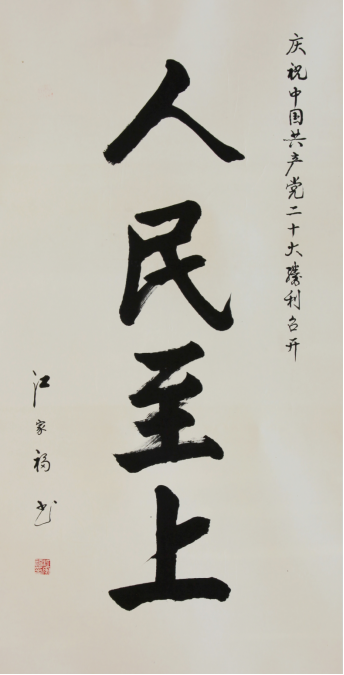 庆祝中国共产党二十大勝利召开
人民至上
江家福书